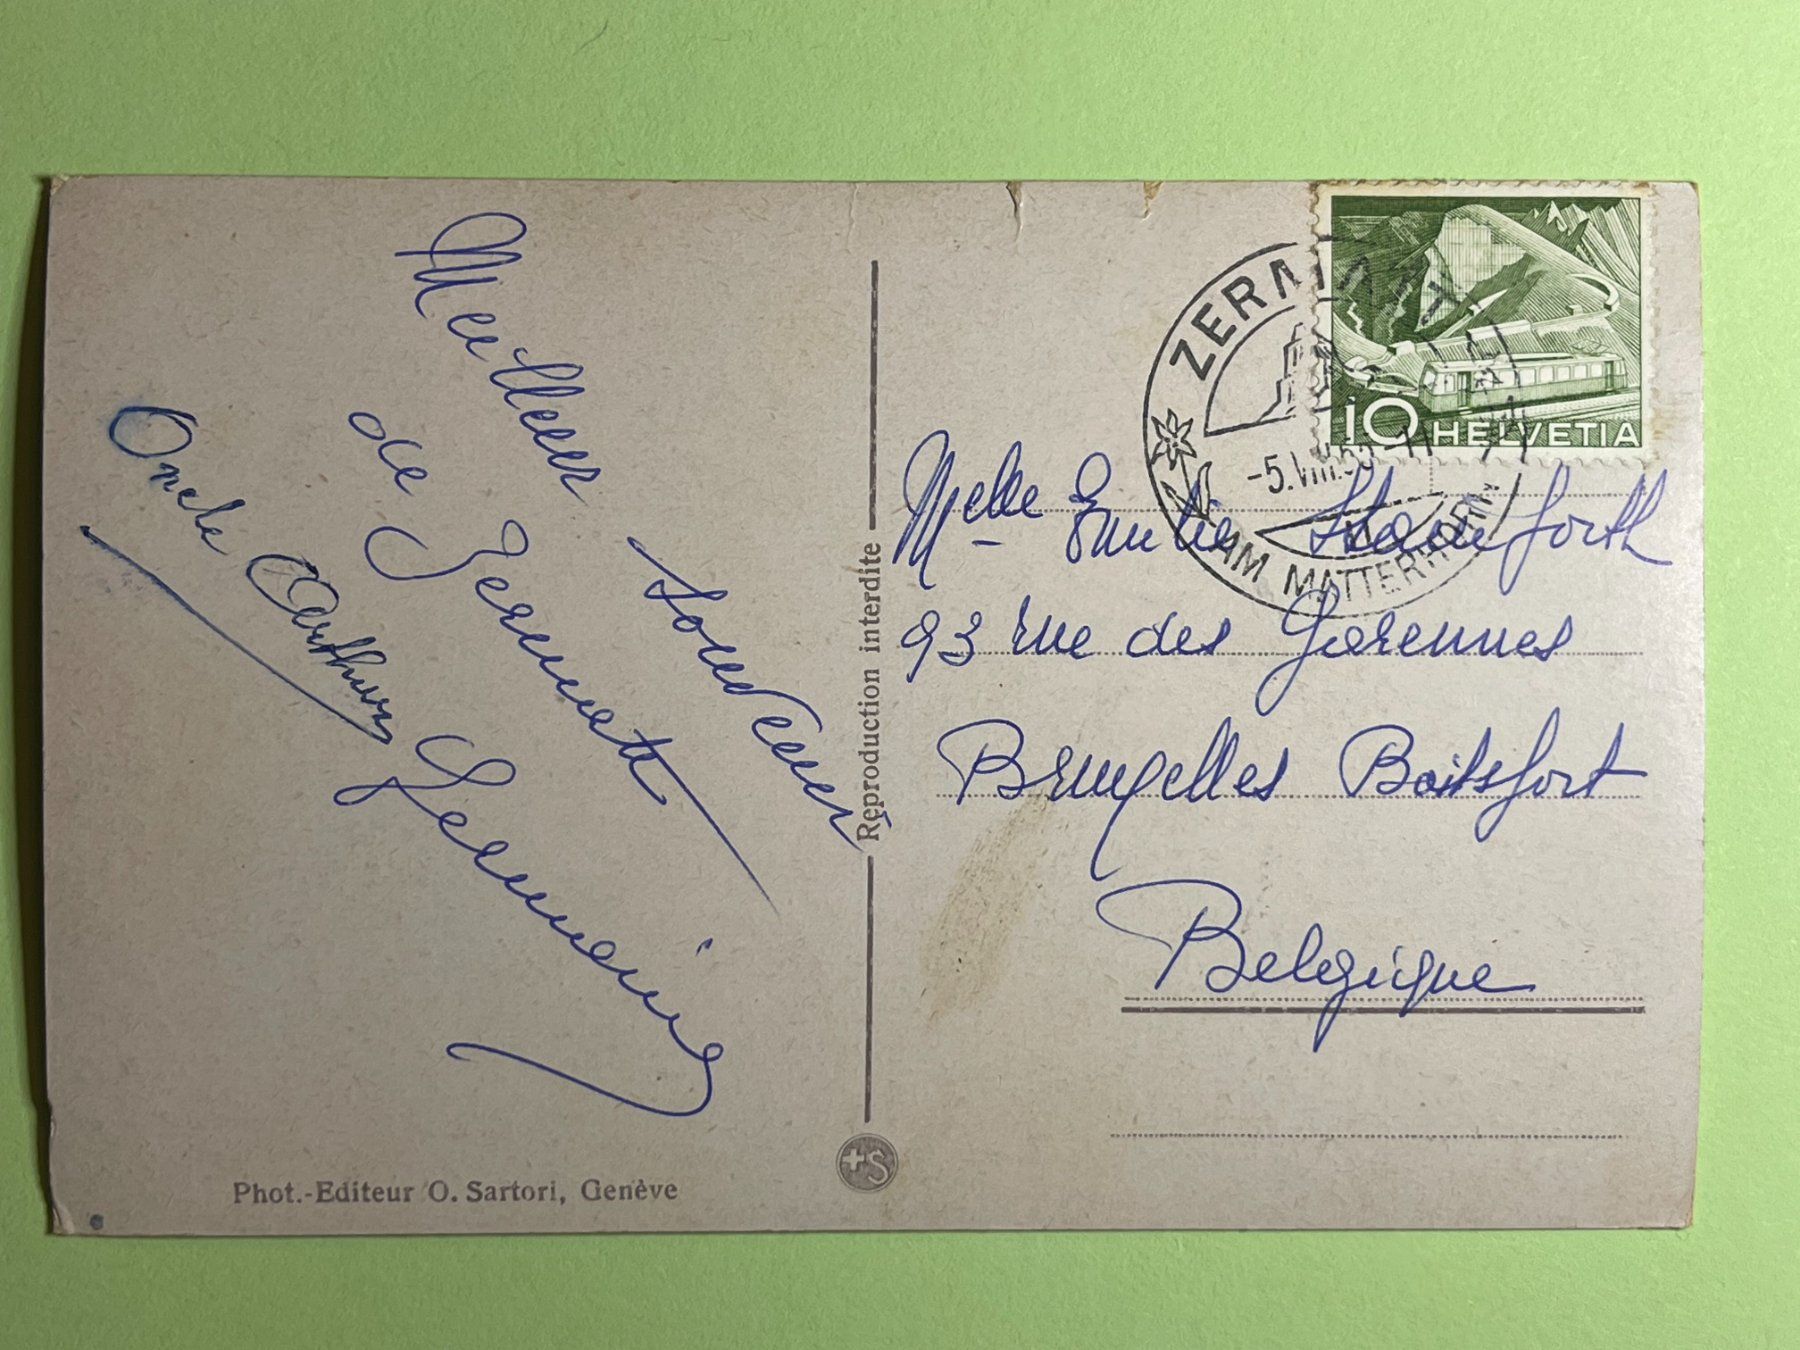 Meilleur souvenir
de Zermatt
Oncle Arthur Germaine
Phot.-Editeur O. Sartori, Genève
Reproduction interdite
+S
ZERMATT
-5.VIII.53
AM MATTERHORN
10 HELVETIA
Melle Emilie
93 rue des Garennes
Bruxelles Boitsfort
Belgique